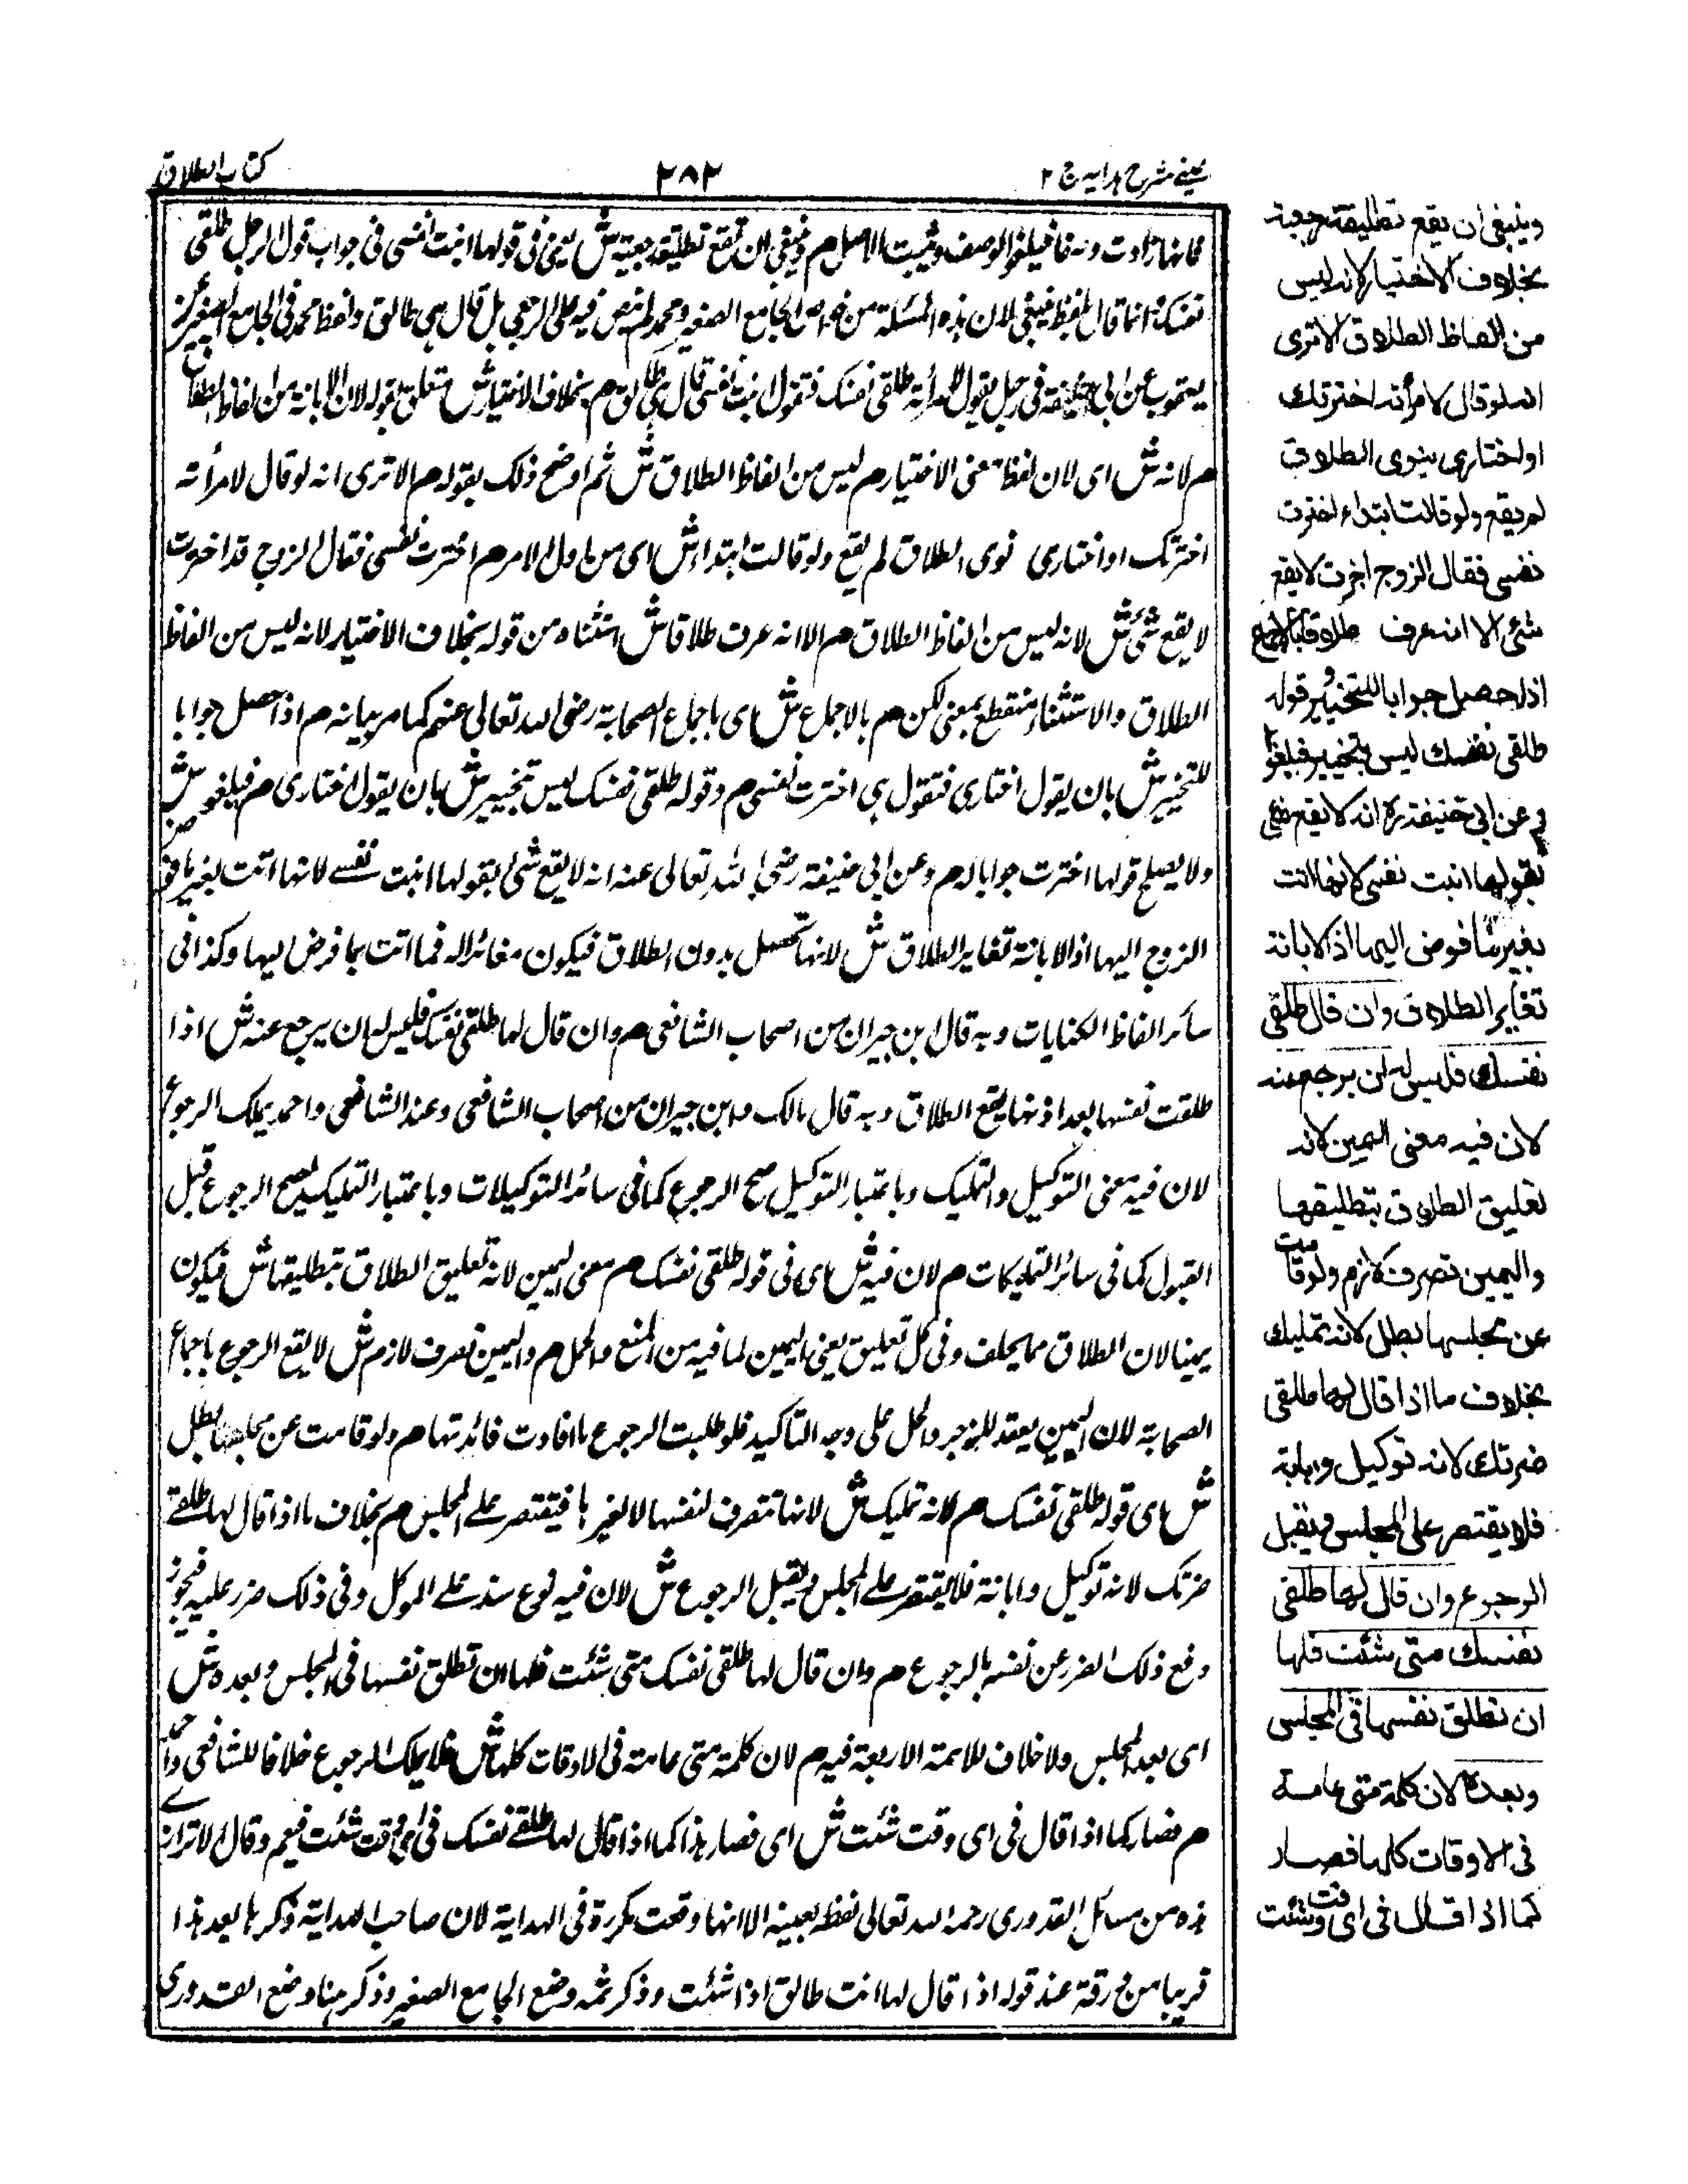 عينى شرح هدايه ج ٢
٢٨٢
كتاب الطلاق
فكانها زادت وصفا فيلغو الوصف ويثبت الاصل م وينبغى ان تقع تطليقة رجعية ش يعنى فى قولها ابنت نفسى فى جواب قول الرجل طلقى
نفسك وانما قال بلفظ ينبغى لان هذه المسئلة من خواص الجامع الصغير ومحمد لم ينص فيه على الرجعى بل قال هى طالق ولفظ محمد فى الجامع الصغير عن
يعقوب عن ابى حنيفة فى رجل يقول لامرأته طلقى نفسك فتقول ابنت نفسى قال هى طالق م بخلاف الاختيار ش متعلق بقوله لان الابانة من الفاظ الطلاق
م لانه ش اى لان لفظة تعنى الاختيار م ليس من الفاظ الطلاق ش ثم اوضح ذلك بقوله م الا ترى انه لو قال لامرأته
اخترتك او اختارى نوى الطلاق لم يقع ولو قالت ابتداء ش اى من اول الامر م اخترت نفسى فقال الزوج قد اخترت
لا يقع شئ ش لانه ليس من الفاظ الطلاق م الا انه عرف طلاقا ش استثناء من قوله بخلاف الاختيار لانه ليس من الفاظ
الطلاق والاستثناء منقطع بمعنى لكن م بالاجماع ش اى باجماع الصحابة رضى الله تعالى عنهم كما مر بيانه م اذا حصل جوابا
للتخيير ش بان يقول اختارى فتقول هى اخترت نفسى م وقوله طلقى نفسك ليس بتخيير ش بان يقول اختارى م فيلغو ش
ولا يصلح قولها اخترت جوابا له م وعن ابى حنيفة رضى الله تعالى عنه انه لا يقع شئ بقولها ابنت نفسى لانها اتت بغير ما فوض
الزوج اليها اذ الابانة تغاير الطلاق ش لانها تحصل بدون الطلاق فيكون مغائرا له فما اتت بما فوض اليها وكذا فى
سائر الفاظ الكنايات وبه قال ابن جيران من اصحاب الشافعى م وان قال لها طلقى نفسك فليس له ان يرجع عنه ش اذا
طلقت نفسها بعد اذنها يقع الطلاق وبه قال مالك وابن جيران من اصحاب الشافعى وعند الشافعى واحمد يملك الرجوع
لان فيه معنى التوكيل والتمليك وباعتبار التوكيل صح الرجوع كما فى سائر التوكيلات وباعتبار التمليك يصح الرجوع قبل
القبول كما فى سائر التمليكات م لان فيه ش اى فى قوله طلقى نفسك م معنى اليمين لانه تعليق الطلاق بتطليقها ش فيكون
يمينا لان الطلاق مما يحلف وفى كل تعليق يعنى اليمين لما فيه من المنع والحمل م واليمين تصرف لازم ش لا يقع الرجوع باجماع
الصحابة لان اليمين يعقد للزجر والحمل على وجه التاكيد فلو طلبت الرجوع ما افادت فائدتها م ولو قامت عن مجلسها بطل
ش اى قوله طلقى نفسك م لانه تمليك ش لانها تتصرف لنفسها لا لغيرها فيقتصر على المجلس م بخلاف ما اذا قال لها طلقى
ضرتك لانه توكيل وابانة فلا يقتصر على المجلس ويقبل الرجوع ش لان فيه نوع سند على الموكل وفى ذلك ضرر عليه فيجوز
دفع ذلك الضرر عن نفسه بالرجوع م وان قال لها طلقى نفسك متى شئت فلها ان تطلق نفسها فى المجلس وبعده ش
اى بعد المجلس ولا خلاف للائمة الاربعة فيه م لان كلمة متى عامة فى الاوقات كلها ش فلا يملك الرجوع خلافا للشافعى واحمد
م فصار كما اذا قال فى اى وقت شئت ش اى فصار هذا كما اذا قال لها طلقى نفسك فى اى وقت شئت فيعم وقال الاترازى
هذه من مسائل القدورى رحمه الله تعالى لفظه بعينه الا انها وقعت مكررة فى الهداية لان صاحب الهداية ذكرها بعد هذا
قريبا من ورقة عند قوله اذا قال لها انت طالق اذا شئت وذكر ثمه وضع الجامع الصغير وذكر هنا وضع القدورى
وينبغى ان يقع تطليقة رجعية
بخلاف الاختيار لانه ليس
من الفاظ الطلاق الا ترى
انه لو قال لامرأته اخترتك
او اختارى ينوى الطلاق
لم يقع ولو قالت ابتداء اخترت
نفسى فقال الزوج اجزت لا يقع
شئ الا انه عرف طلاقا بالاجماع
اذا حصل جوابا للتخيير وقوله
طلقى نفسك ليس بتخيير فيلغو
وعن ابى حنيفة ره انه لا يقع شئ
بقولها ابنت نفسى لانها اتت
بغير ما فوض اليها اذ الابانة
تغاير الطلاق وان قال طلقى
نفسك فليس له ان يرجع عنه
لان فيه معنى اليمين لانه
تعليق الطلاق بتطليقها
واليمين تصرف لازم ولو قامت
عن مجلسها بطل لانه تمليك
بخلاف ما اذا قال لها طلقى
ضرتك لانه توكيل وابانة
فلا يقتصر على المجلس ويقبل
الرجوع وان قال لها طلقى
نفسك متى شئت فلها
ان تطلق نفسها فى المجلس
وبعده لان كلمة متى عامة
فى الاوقات كلها فصار
كما اذا قال فى اى وقت شئت